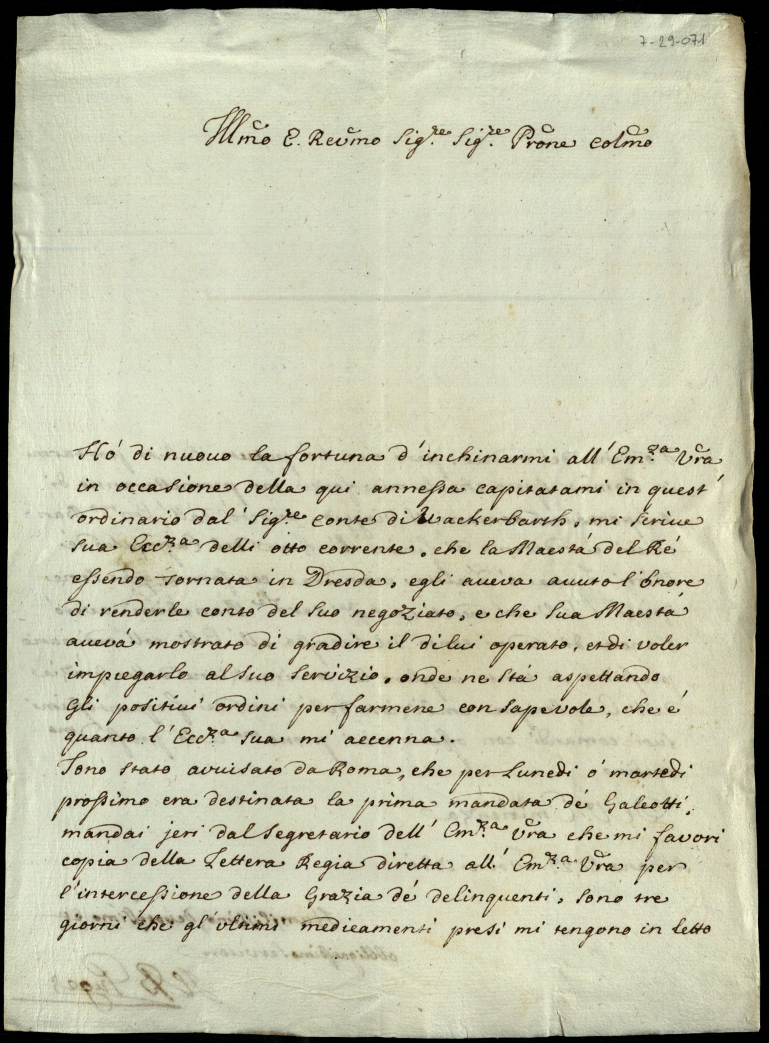 7-29-071
Illmo e Revmo Sig.re Sig.re Prone Colmo
Hó di nuovo la fortuna d'inchinarmi all'Em.za Vra
in occasione della qui annessa capitatami in quest'
ordinario dal' Sig.re Conte di Wackerbarth, mi scrive
sua Ecc.za delli otto corrente, che la Maestá del Ré
essendo tornata in Dresda, egli aveva avuto l'onore
di renderle conto del suo negoziato, e che sua Maestá
avevá mostrato di gradire il di lui operato, et di voler
impiegarlo al suo servizio, onde ne stá aspettando
gli positivi ordini per farmene consapevole, che é
quanto l'Ecc.za sua mi accenna.
Sono stato avvisato da Roma, che per Lunedi ó martedi
prossimo era destinata la prima mandata dé Galeotti,
mandai jeri dal Segretario dell' Em.za Vra che mi favori
copia della Lettera Regia diretta all' Em.za Vra per
l'intercessione della Grazia dé delinquenti, sono tre
giorni che gl'ultimi medicamenti presi mi tengono in letto